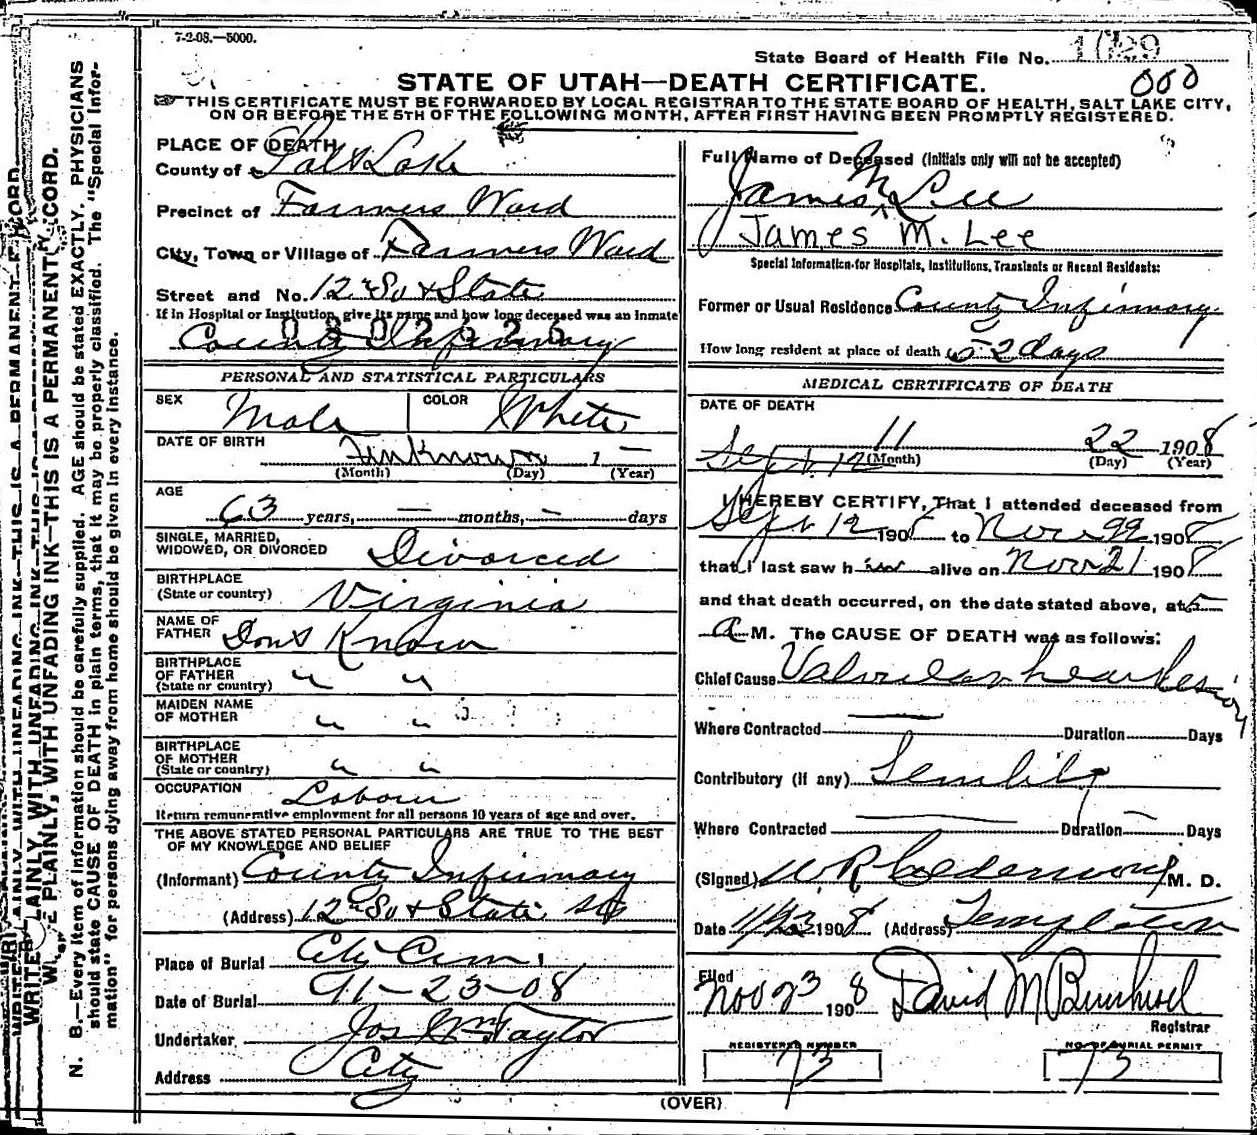 7-2-08.—5000.
State Board of Health File No. 1029
000
STATE OF UTAH—DEATH CERTIFICATE.
THIS CERTIFICATE MUST BE FORWARDED BY LOCAL REGISTRAR TO THE STATE BOARD OF HEALTH, SALT LAKE CITY,
ON OR BEFORE THE 5TH OF THE FOLLOWING MONTH, AFTER FIRST HAVING BEEN PROMPTLY REGISTERED.
PLACE OF DEATH
County of Salt Lake
Precinct of Farmers Ward
City, Town or Village of Farmers Ward
Street and No. 12 So & State
If in Hospital or Institution, give its name and how long deceased was an Inmate
County Infirmary
0802626
PERSONAL AND STATISTICAL PARTICULARS
SEX Male
COLOR White
DATE OF BIRTH Unknown 1 —
(Month) (Day) (Year)
AGE
63 years, — months, — days
SINGLE, MARRIED,
WIDOWED, OR DIVORCED Divorced
BIRTHPLACE
(State or country) Virginia
NAME OF
FATHER Dont Know
BIRTHPLACE
OF FATHER
(State or country) " "
MAIDEN NAME
OF MOTHER " "
BIRTHPLACE
OF MOTHER
(State or country) " "
OCCUPATION Labour
Return remunerative employment for all persons 10 years of age and over.
THE ABOVE STATED PERSONAL PARTICULARS ARE TRUE TO THE BEST
OF MY KNOWLEDGE AND BELIEF
(Informant) County Infirmary
(Address) 12 So & State
Place of Burial City Cem.
Date of Burial 11-23-08
Undertaker Jos Wm Taylor
Address City
Full Name of Deceased (Initials only will not be accepted)
James M Lee
James M. Lee
Special Information for Hospitals, Institutions, Transients or Recent Residents:
Former or Usual Residence County Infirmary
How long resident at place of death 52 days
MEDICAL CERTIFICATE OF DEATH
DATE OF DEATH
11 22 1908
Sept. 12 (Month) (Day) (Year)
I HEREBY CERTIFY, That I attended deceased from
Sept 12 1908 to Nov 22 1908
that I last saw him alive on Nov 21 1908
and that death occurred, on the date stated above, at 5
A M. The CAUSE OF DEATH was as follows:
Chief Cause Valvular heart lesion
Where Contracted — Duration Days
Contributory (if any) Senility
Where Contracted — Duration — Days
(Signed) W R Calderwood M. D.
Date 11/23 1908 (Address) Templeton
Filed
Nov 23 1908 David M Burnhisel
Registrar
REGISTERED NUMBER
73
NO. OF BURIAL PERMIT
73
(OVER)
WRITE PLAINLY, WITH UNFADING INK—THIS IS A PERMANENT RECORD.
N. B.—Every item of information should be carefully supplied. AGE should be stated EXACTLY. PHYSICIANS
should state CAUSE OF DEATH in plain terms, that it may be properly classified. The "Special Infor-
mation" for persons dying away from home should be given in every instance.